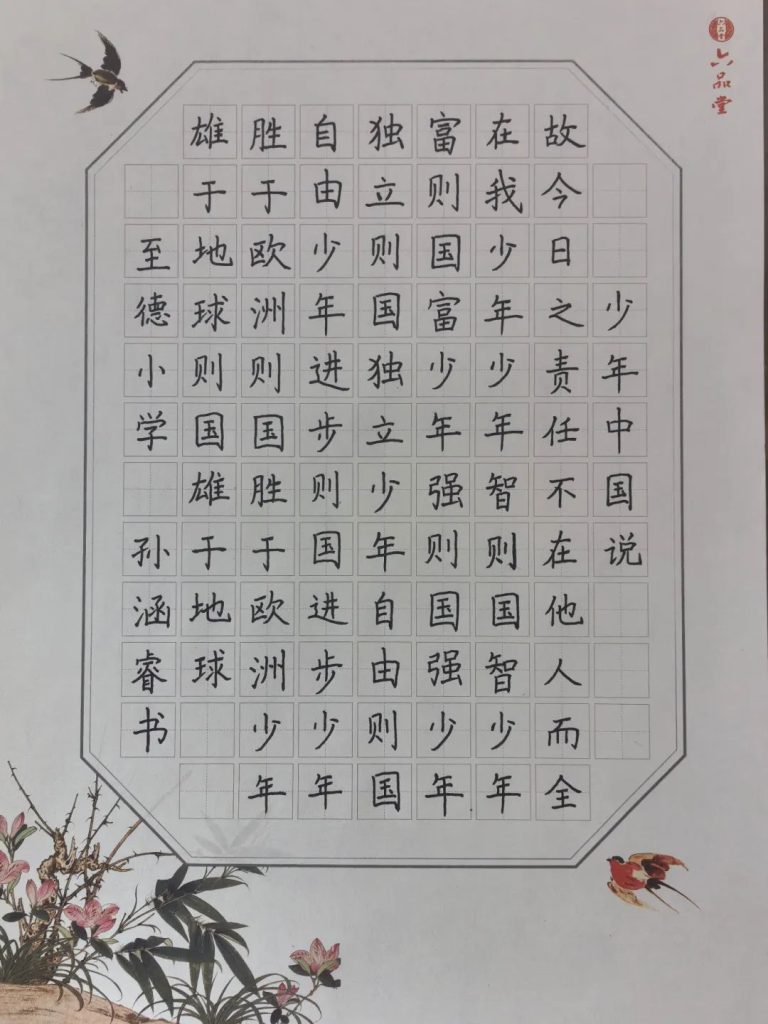 少年中国说
故今日之责任不在他人而全
在我少年少年智则国智少年
富则国富少年强则国强少年
独立则国独立少年自由则国
自由少年进步则国进步少年
胜于欧洲则国胜于欧洲少年
雄于地球则国雄于地球
至德小学 孙涵睿书
六品堂